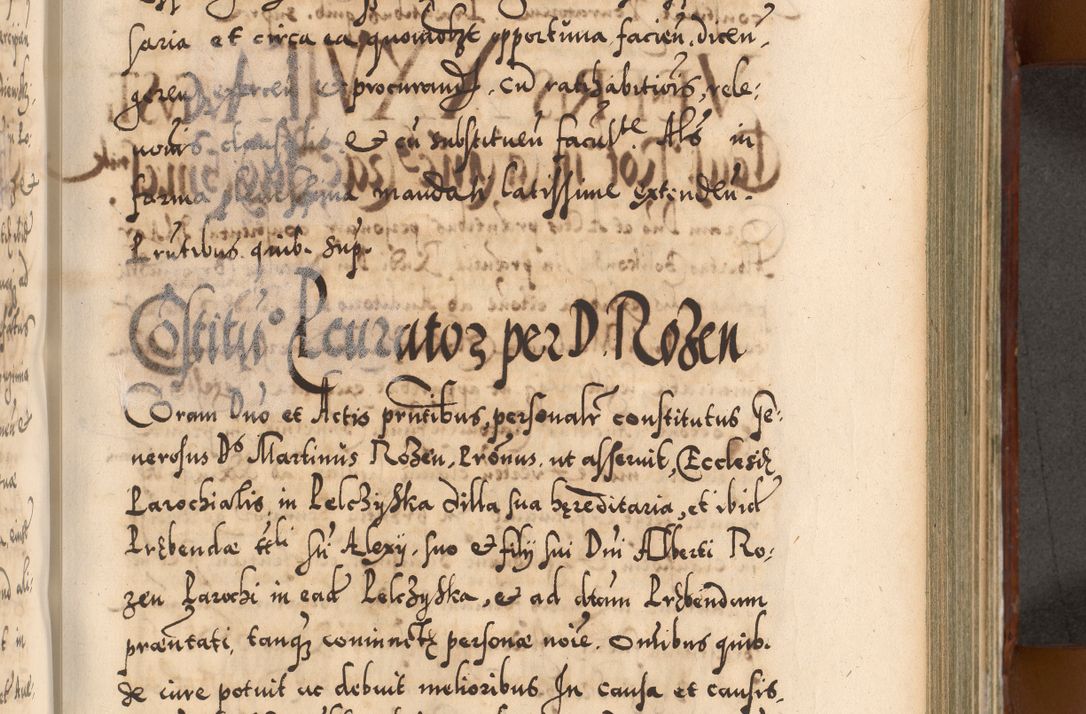 saria et circa ea quomodlt opportuna facien, dicen,
geren, exercen et procurand. Cu ratihabitiois, rele:
uois clausulis et cu substituen faculte. Als in
forma plenissima mandati latissime extenden.
Prntibus quib. sup.
Costitus Pcurator per D. Rozen
Coram Dno et Actis prntibus, personalr constitutus Ge:
nerosus Ds Martinus Rozen, Pronus, ut asseruit, Ecclesię
Parochialis, in Pelczyska Villa sua hęreditaria, et ibid
Prębendæ ttli Sti Alexy, suo et filij sui Dni Alberti Ro:
zen Parochi in ead Pelczyska, et ad dtam Prębendam
præntati, tanqz coniunctę personæ noie. Omibus quib.
de iure potuit ac debuit melioribus In causa et causis,